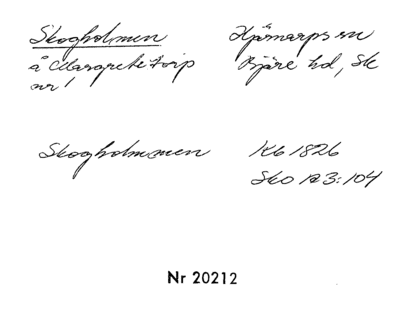 Skogholmen Hjärnarps sn
å Margretetorp Bjäre hd, Sk
nr 1
Skogholmen Kb 1826
Sko A 3:104
Nr 20212